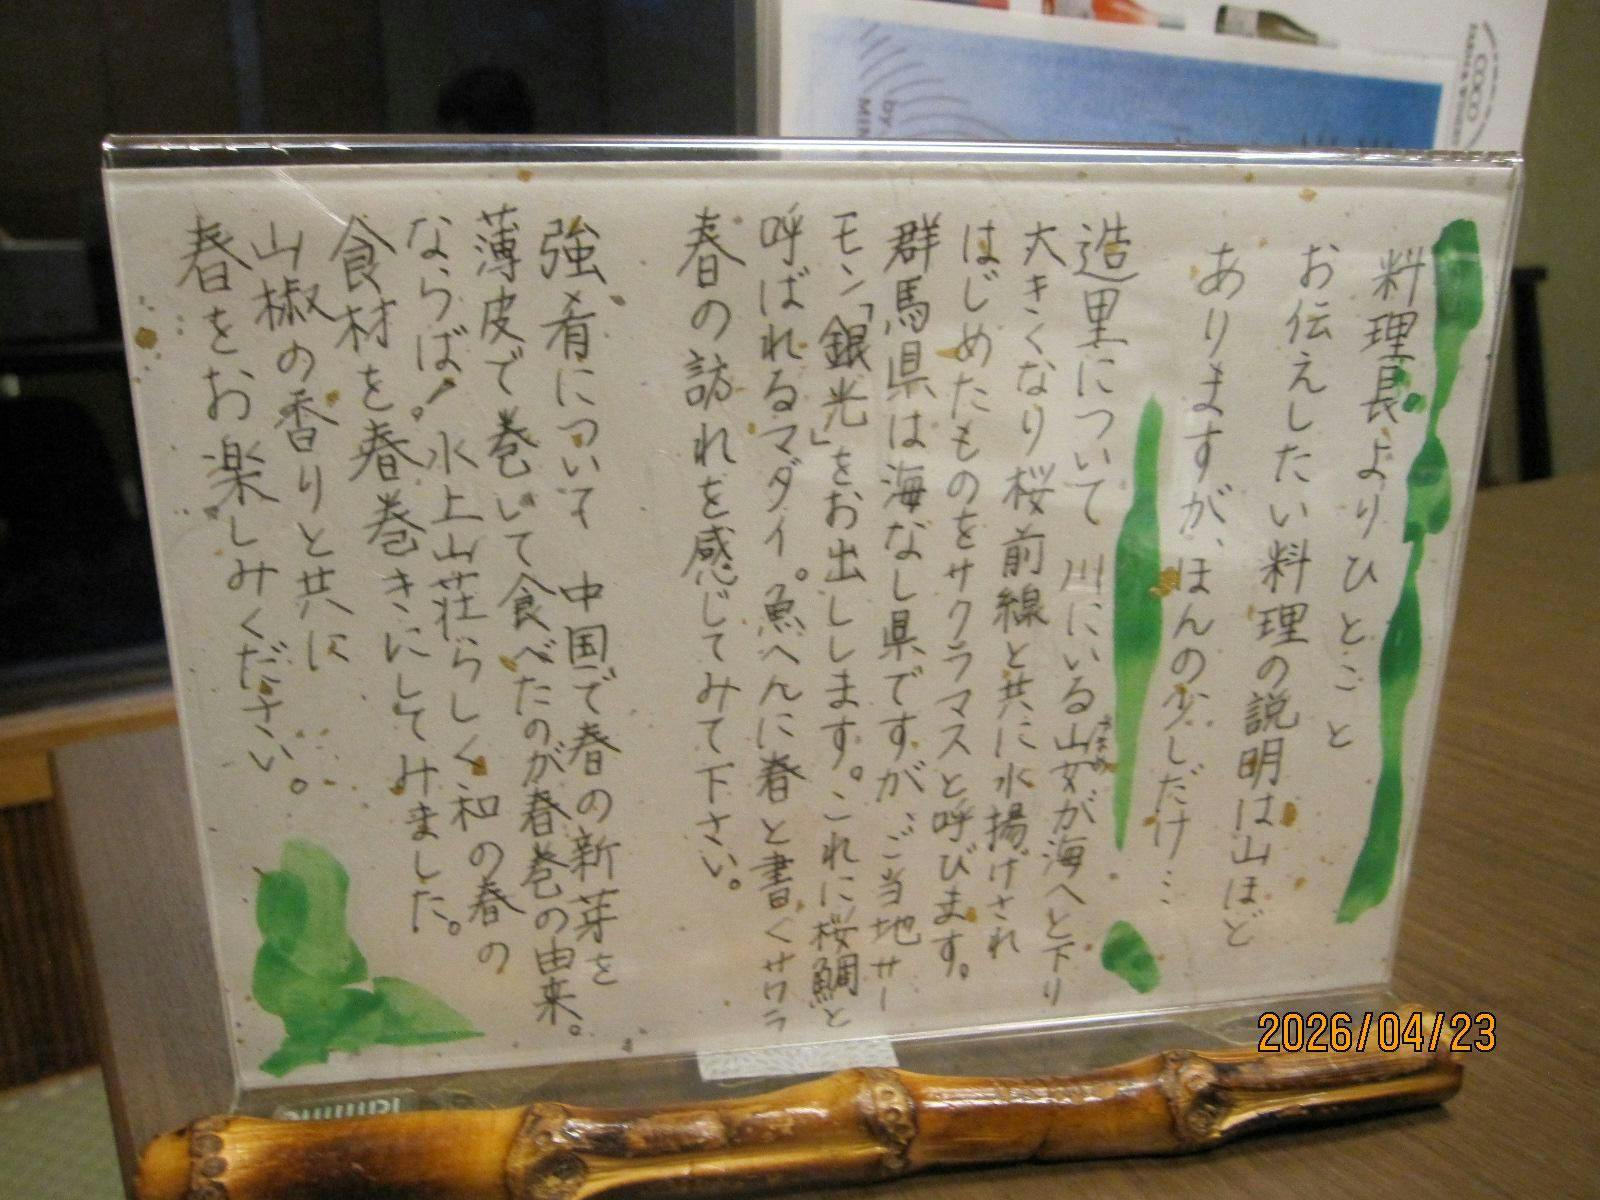 料理長よりひとこと
お伝えしたい料理の説明は山ほど
ありますが、ほんの少しだけ…
造里について 川にいる山女が海へと下り
やまめ
大きくなり桜前線と共に水揚げされ
はじめたものをサクラマスと呼びます。
群馬県は海なし県ですが、ご当地サー
モン「銀光」をお出しします。これに桜鯛と
呼ばれるマダイ。魚へんに春と書くサワラ
春の訪れを感じてみて下さい。
強肴について 中国で春の新芽を
薄皮で巻いて食べたのが春巻の由来。
ならば!水上山荘らしく和の春の
食材を春巻きにしてみました。
山椒の香りと共に
春をお楽しみください。
by
COCO
2026/04/23